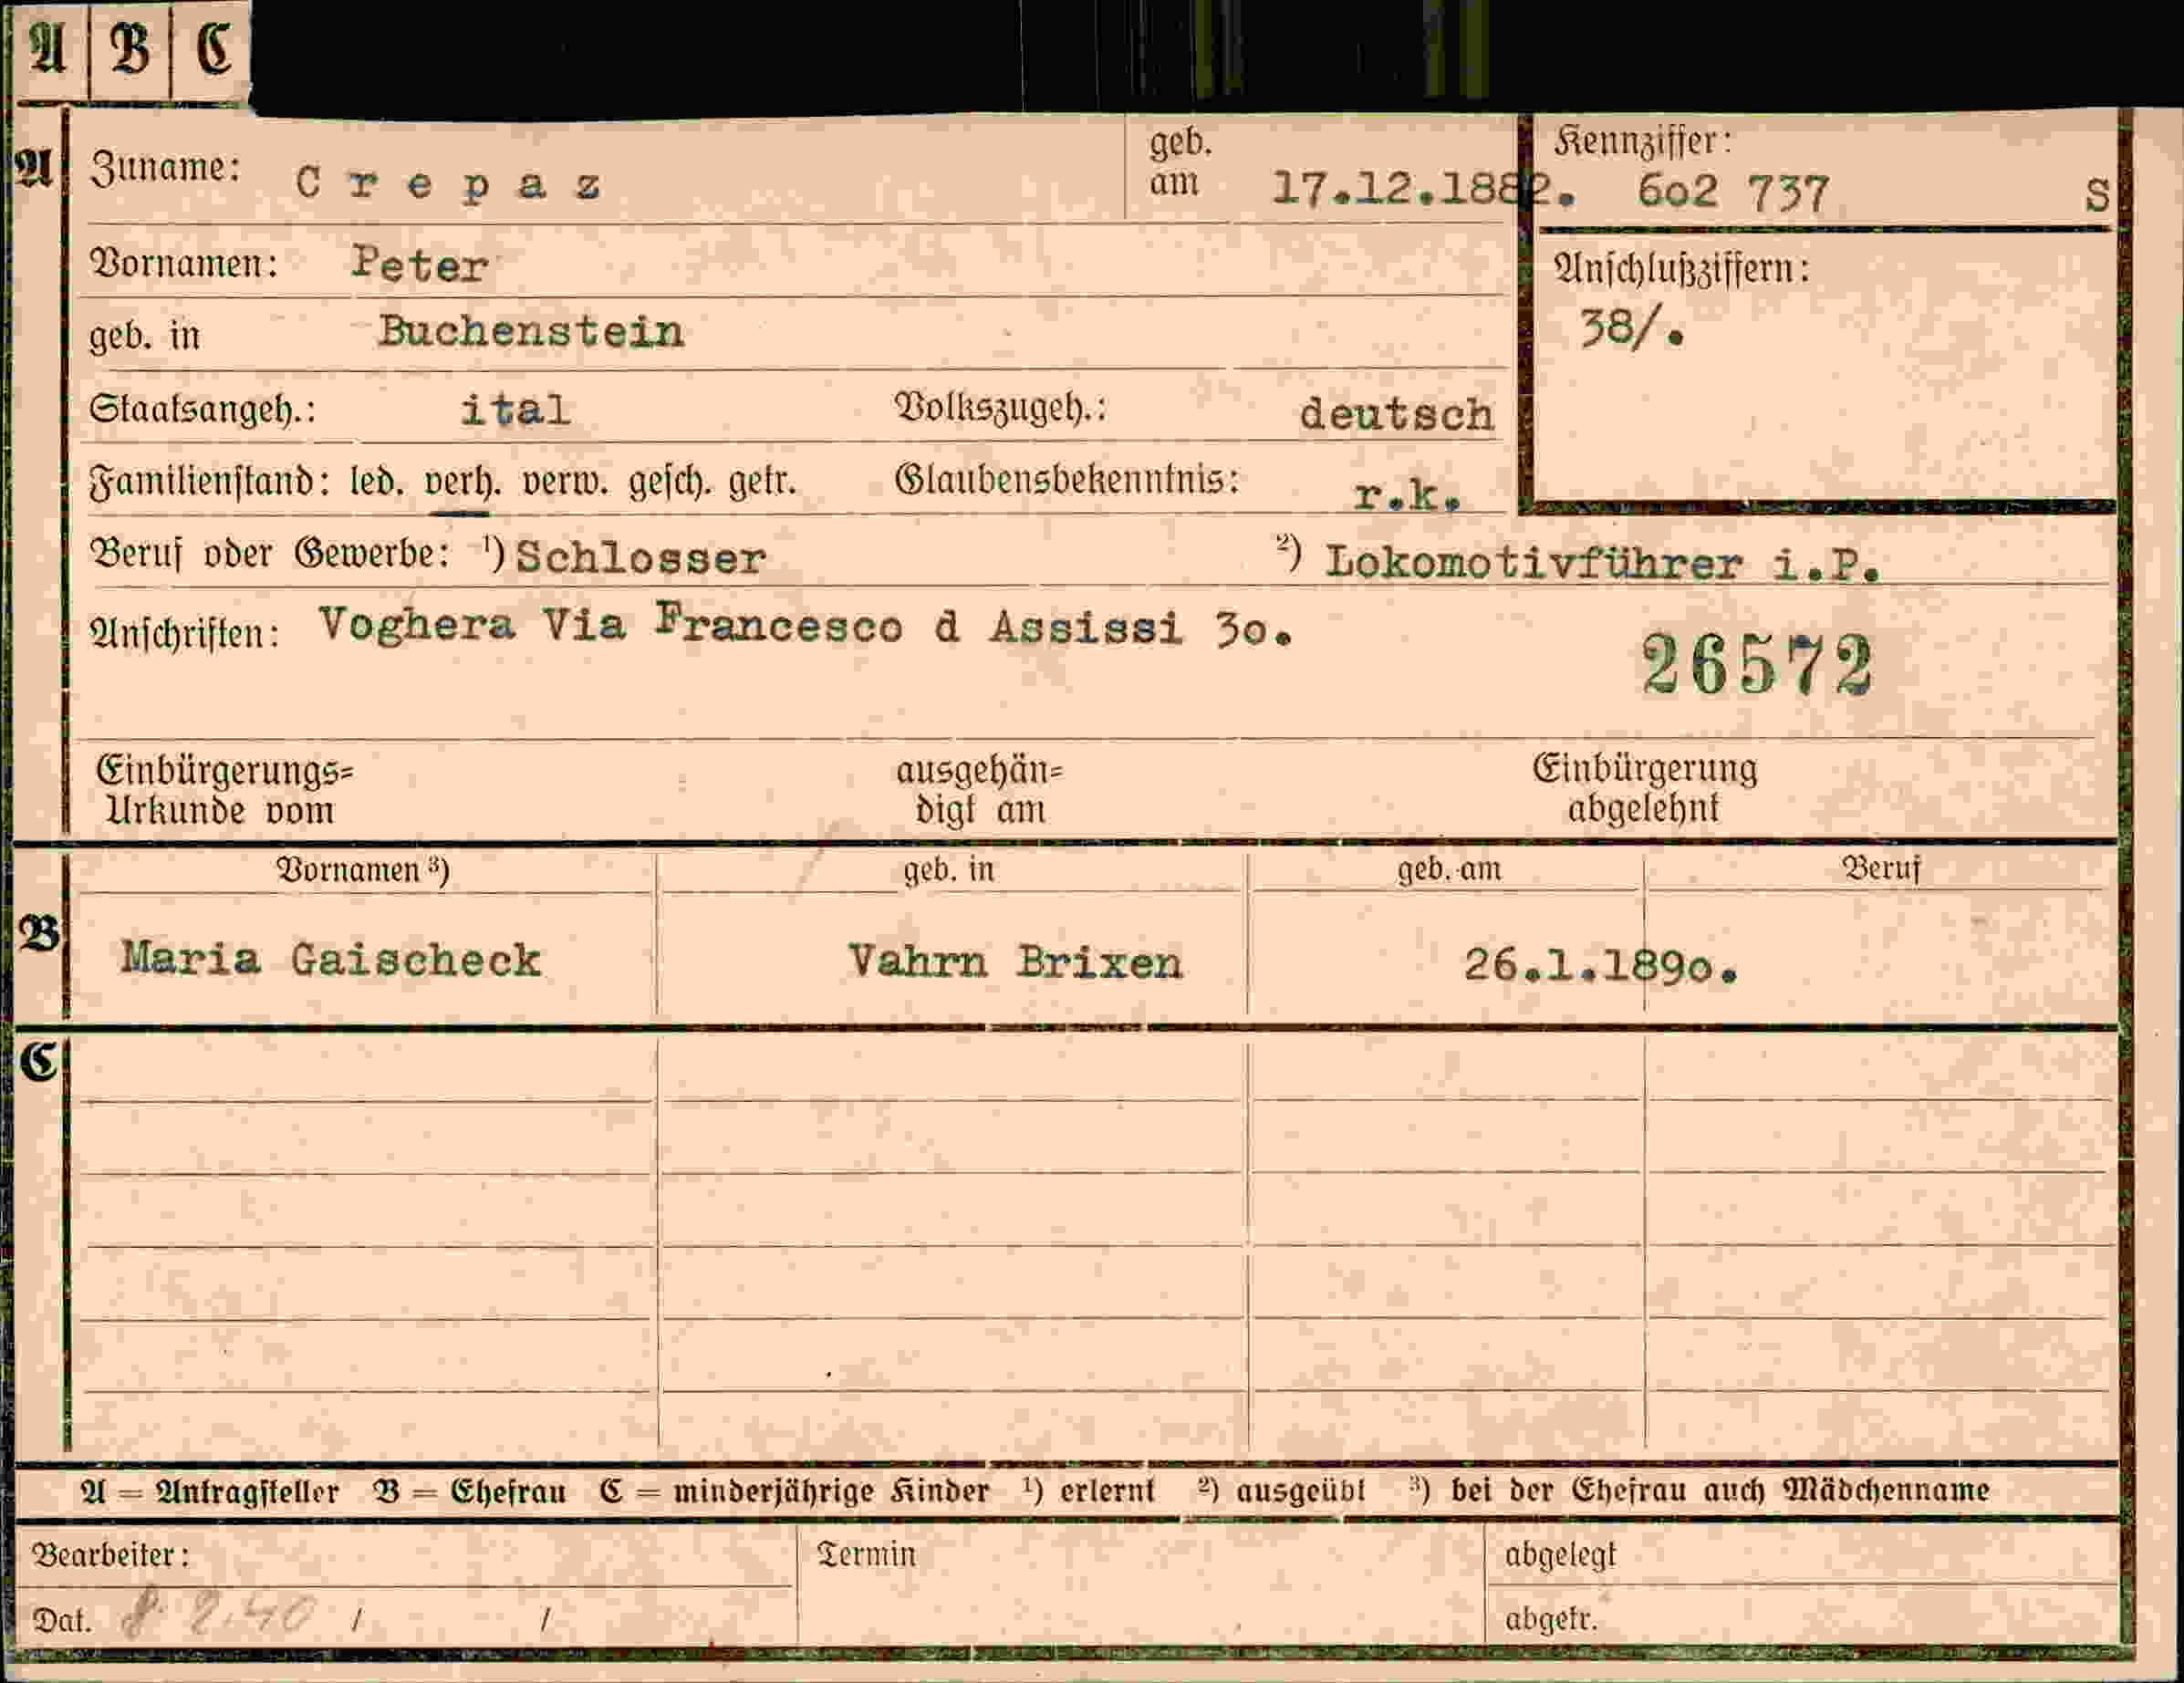 A B C
A Zuname: Crepaz geb. am 17.12.1882. Kennziffer: 602 737 S
Vornamen: Peter Anschlußziffern:
geb. in Buchenstein 38/.
Staatsangeh.: ital Volkszugeh.: deutsch
Familienstand: led. verh. verw. gesch. getr. Glaubensbekenntnis: r.k.
Beruf oder Gewerbe: ¹) Schlosser ²) Lokomotivführer i.P.
Anschriften: Voghera Via Francesco d Assissi 30.
26572
Einbürgerungs= ausgehän= Einbürgerung
Urkunde vom digt am abgelehnt
Vornamen ³) geb. in geb. am Beruf
B Maria Gaischeck Vahrn Brixen 26.1.1890.
C
A = Antragsteller B = Ehefrau C = minderjährige Kinder ¹) erlernt ²) ausgeübt ³) bei der Ehefrau auch Mädchenname
Bearbeiter: Termin abgelegt
Dat. 8. 2. 40 / / abgetr.